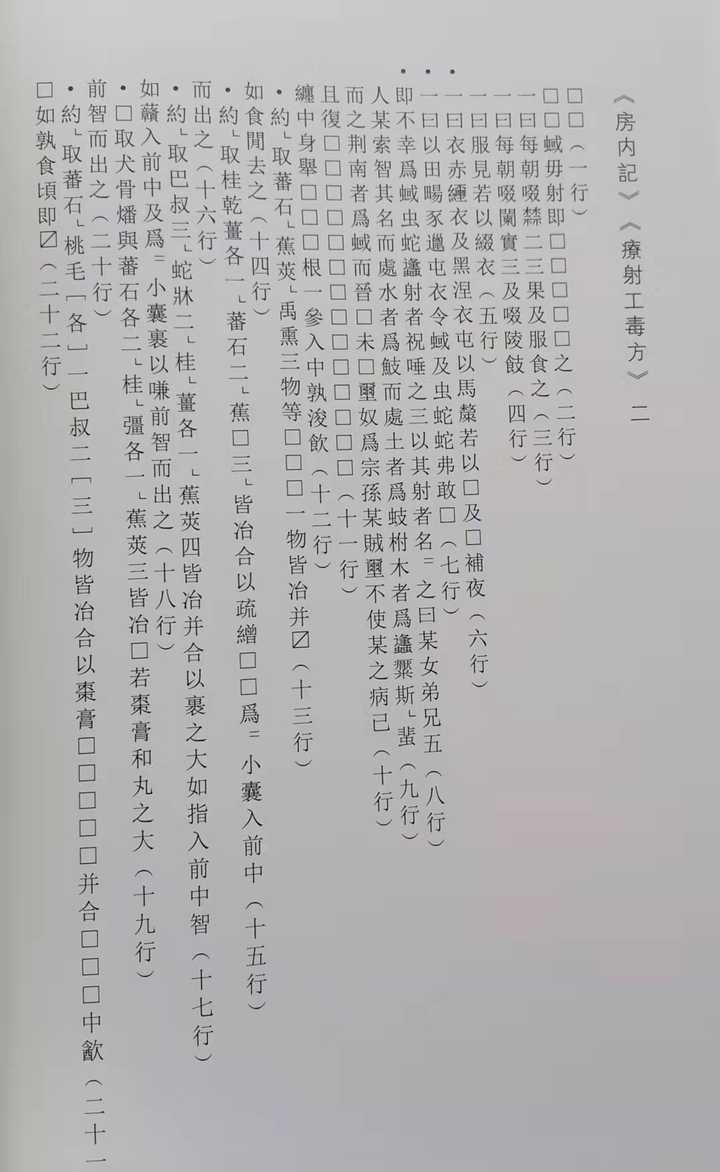 《房内記》《療射工毒方》 二
□□（一行）
□□蜮毋射即□□□□□之（二行）
一曰每朝啜禁二三果及服食之（三行）
一曰每朝啜闌實三及啜陵敁（四行）
一曰服見若以綴衣（五行）
•一曰衣赤纏衣及黑涅衣屯以馬氂若以□及□補夜（六行）
•一曰以田暘豕邋屯衣令蜮及虫蛇蛇弗敢□（七行）
•即不幸爲蜮虫蛇蠭射者祝唾之三以其射者名₌之曰某女弟兄五（八行）
人某索智其名而處水者爲鮁而處土者爲蚑柎木者爲蠭斯∟蜚（九行）
而之荆南者爲蜮而晉□未□壐奴爲宗孫某賊壐不使某之病已（十行）
且復□□□□□□□□□□□□□□（十一行）
纏中身舉□□□□根一參入中孰浚飲（十二行）
•約∟取蕃石∟蕉莢∟禹熏三物等□□□一物皆冶并☑（十三行）
如食閒去之（十四行）
•約∟取桂乾薑各一∟蕃石二∟蕉□三∟皆冶合以疏繒□□爲₌小囊入前中（十五行）
而出之（十六行）
•約∟取巴叔三∟蛇牀二∟桂∟薑各一∟蕉莢四皆冶并合以裹之大如指入前中智（十七行）
如䕪入前中及爲₌小囊裹以嗛前智而出之（十八行）
•□取犬骨燔與蕃石各二∟桂∟彊各一∟蕉莢三皆冶□若棗膏和丸之大（十九行）
前智而出之（二十行）
•約∟取蕃石∟桃毛［各］一巴叔二［三］物皆冶合以棗膏□□□□□并合□□□中歙（二十一
□如孰食頃即☑（二十二行）